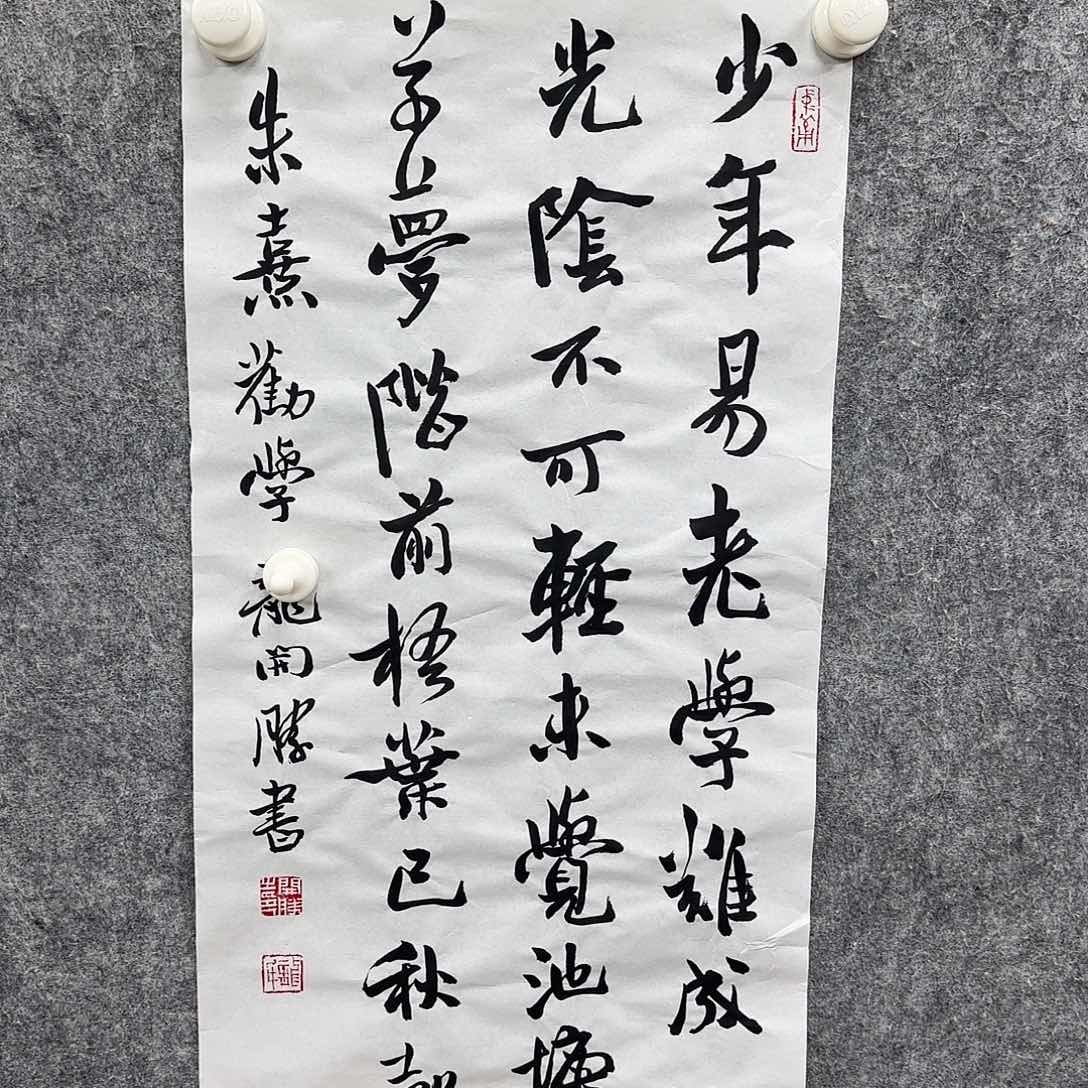 少年易老學難成
光陰不可輕未覺池塘
草夢階前梧葉已秋
朱熹勸學 龍開勝書